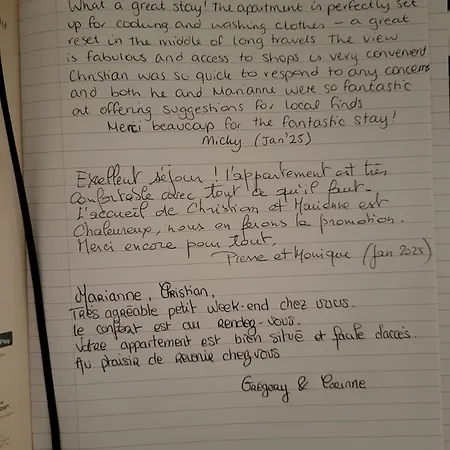 What a great stay! The apartment is perfectly set
up for cooking and washing clothes – a great
reset in the middle of long travels. The view
is fabulous and access to shops is very convenient
Christian was so quick to respond to any concerns
and both he and Marianne were so fantastic
at offering suggestions for local finds
Merci beaucoup for the fantastic stay!
Micky (Jan'25)
Excellent séjour ! L'appartement est très
confortable avec tout ce qu'il faut.
L'accueil de Christian et Marianne est
chaleureux, nous en ferons la promotion.
Merci encore pour tout.
Pierre et Monique (Jan 2025)
Marianne, Christian,
Très agréable petit week-end chez vous.
Le confort est au rendez-vous.
Votre appartement est bien situé et facile d'accès.
Au plaisir de revenir chez vous
Grégory & Corinne
Play